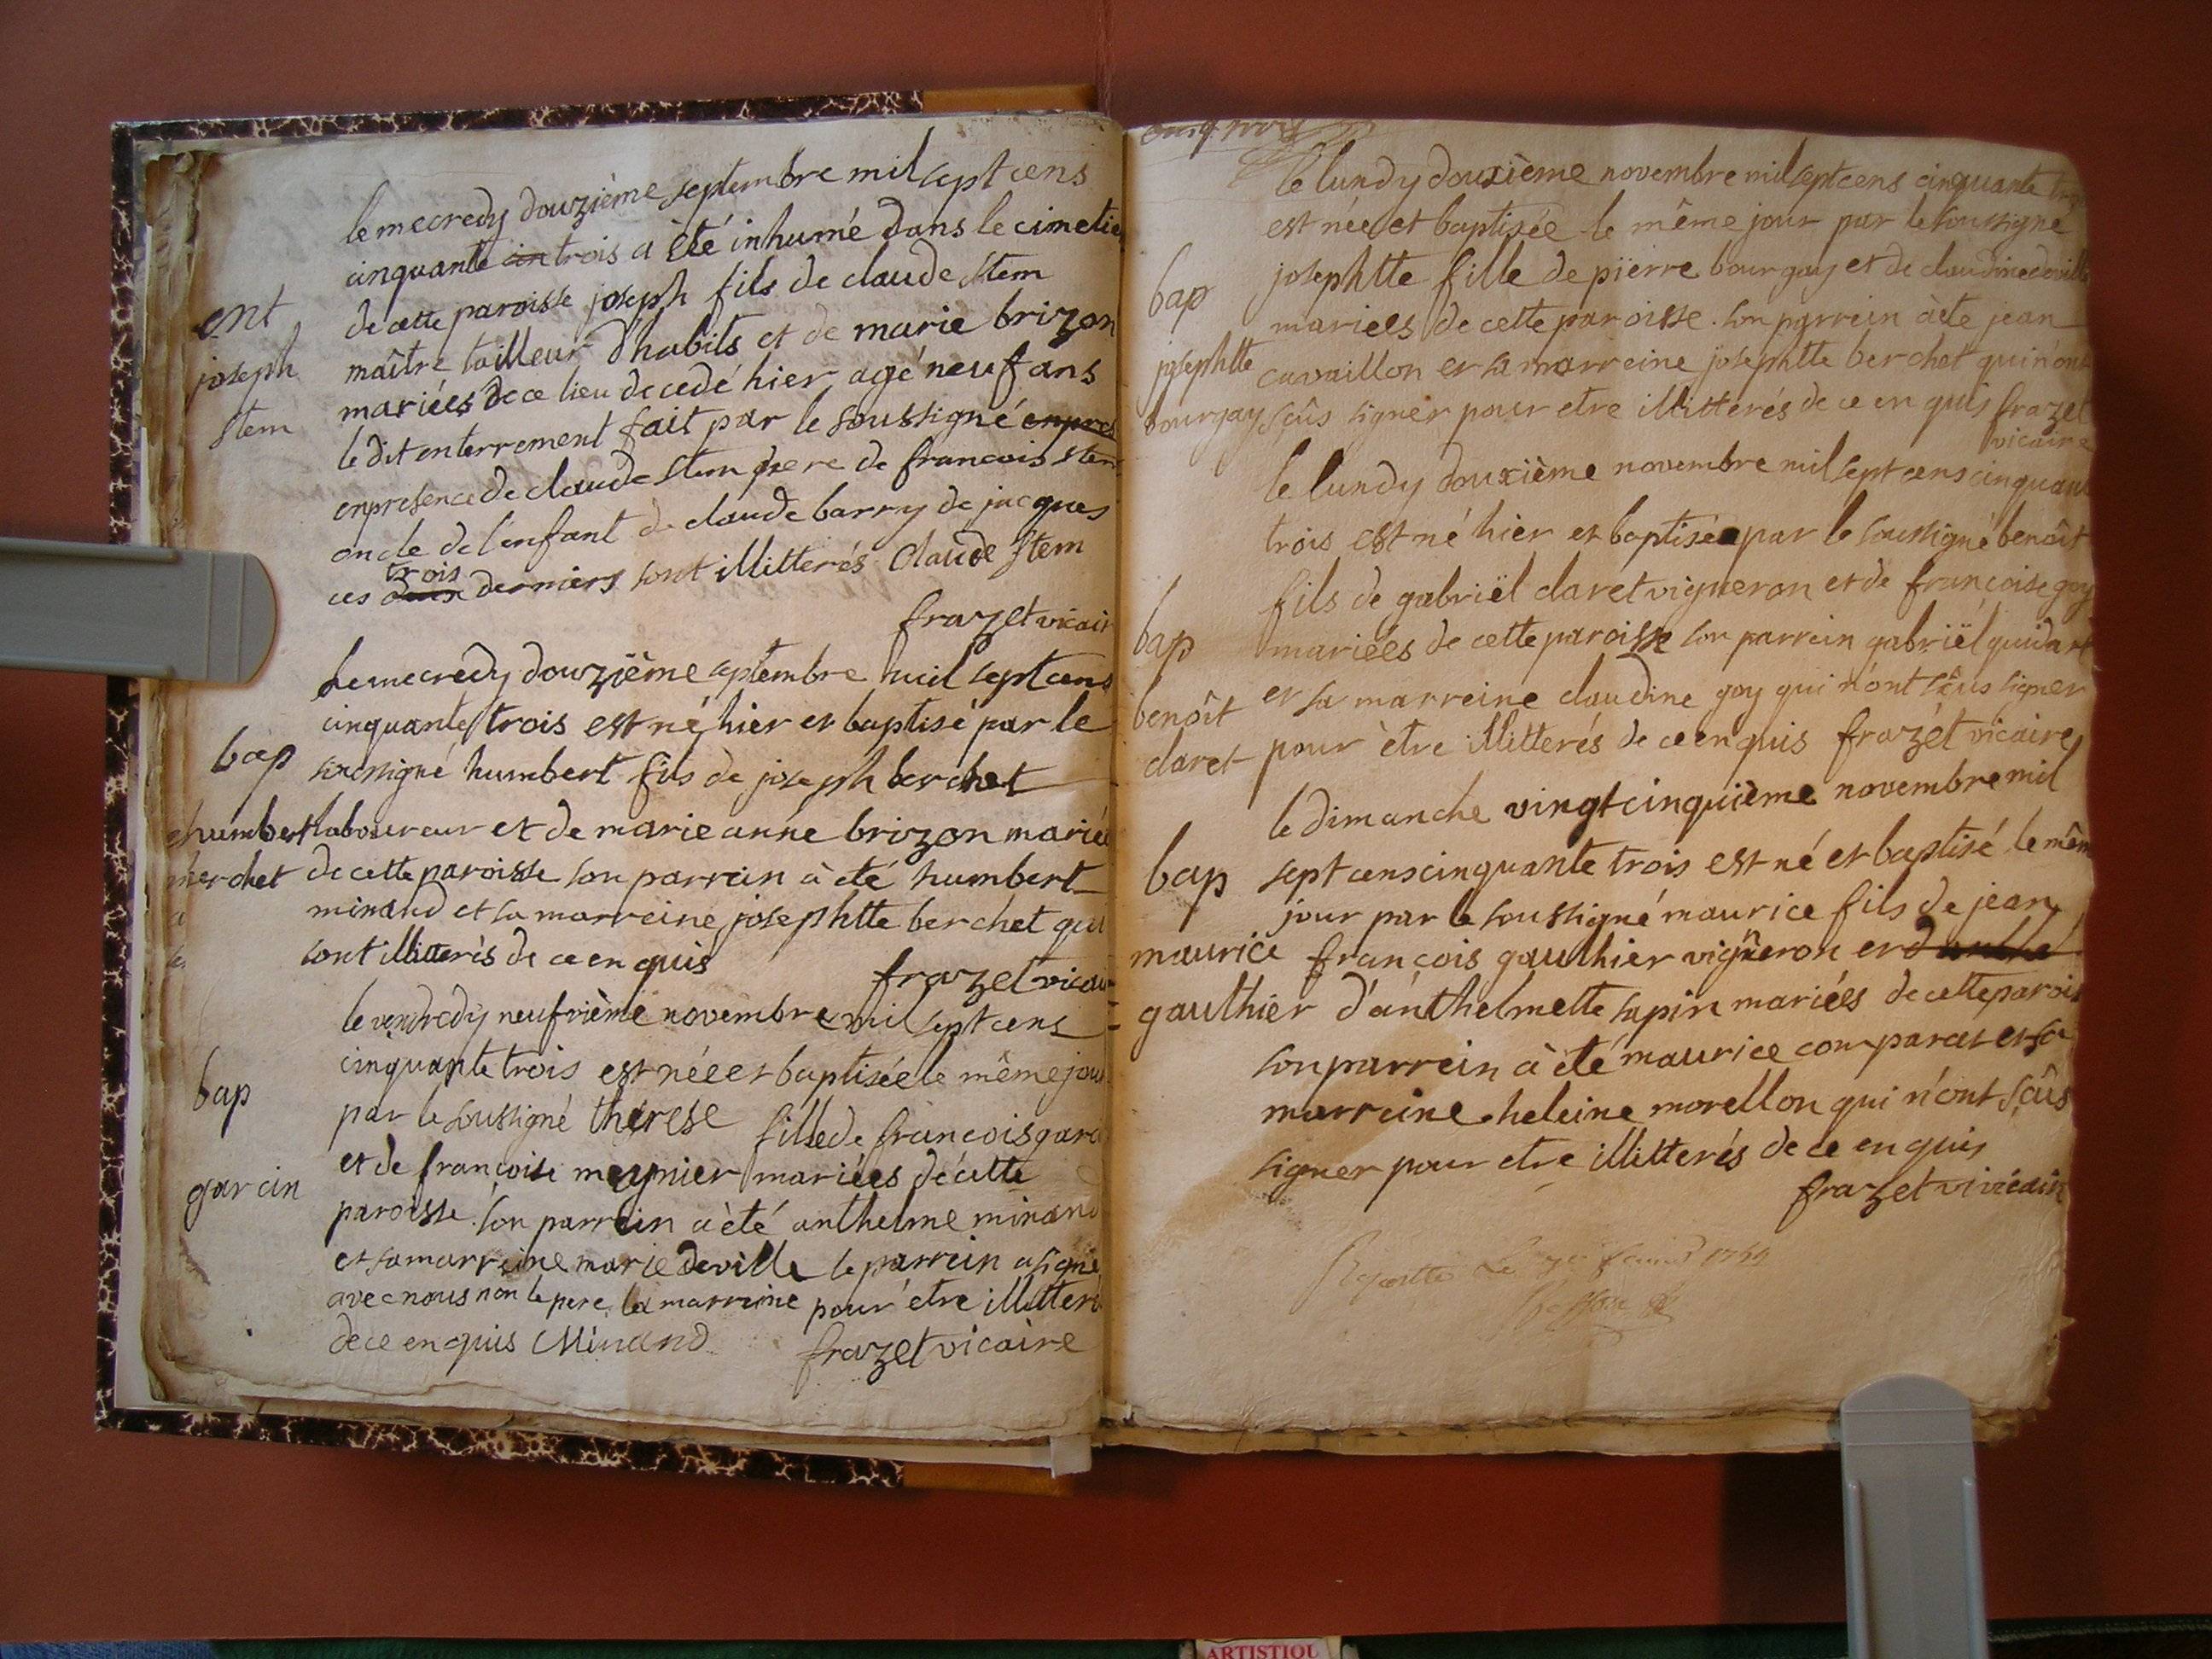 le mecredy douzième septembre mil sept cens
cinquante trois a èté inhumé dans le cimetie
ent
de cette paroisse joseph fils de claude stem
joseph
maître tailleur d'habits et de marie brizon
stem
mariées de ce lieu decedé hier agé neuf ans
le dit enterrement fait par le soussigné enpres
enpresence de claude stem pere de francois stem
oncle de l'enfant de claude barry de jacques
ces trois derniers sont illitterés Claude Stem
frazet vicair
Le mecredy douzième septembre mil sept cens
cinquante trois est né hier et baptisé par le
bap
soussigné humbert fils de joseph berchet
humbert
laboureur et de marie anne brizon mariée
berchet
de cette paroisse son parrein à èté humbert
minand et sa marreine josephtte berchet qui
sont illitterés de ce enquis
frazet vicair
le vendredy neufvième novembre mil sept cens
cinquante trois est née et baptisée le même jour
bap
par le soussigné therese fille de francois garci
et de françoise meynier mariées de cette
garcin
paroisse. son parrein a èté anthelme minand
et sa marreine marie deville le parrein a signé
avec nous non le pere, la marreine pour être illitteré
de ce enquis Minand frazet vicaire
le lundy douxième novembre mil sept cens cinquante troi
est née et baptisée le même jour par le soussigné
bap
josephtte fille de pïerre bourgay et de claudine deville
mariées de cette paroisse. son parrein à èté jean
josephtte
cavaillon et sa marreine josephtte berchet qui n'ont
bourgay
sçûs signer pour etre illitterés de ce enquis frazet
vicaire
le lundy douxième novembre mil sept cens cinquant
trois est né hier et baptisé par le soussigné benoît
fils de gabriël claret vigneron et de françoise goy
bap
mariées de cette paroisse son parrein gabriël guidart
benoît
et sa marreine claudine goy qui n'ont sçûs signer
claret
pour ètre illitterés de ce enquis frazet vicaire
le dimanche vingt cinquième novembre mil
bap
sept cens cinquante trois est né et baptisé le mêm
jour par le soussigné maurice fils de jean
maurice
françois gauthier vigneron et
gauthier
d'anthelmette sapin mariées de cette parois
son parrein à èté maurice comparat et sa
marreine heleine morellon qui n'ont sçûs
signer pour etre illitterés de ce enquis
frazet viviéair
ARTISTIQU